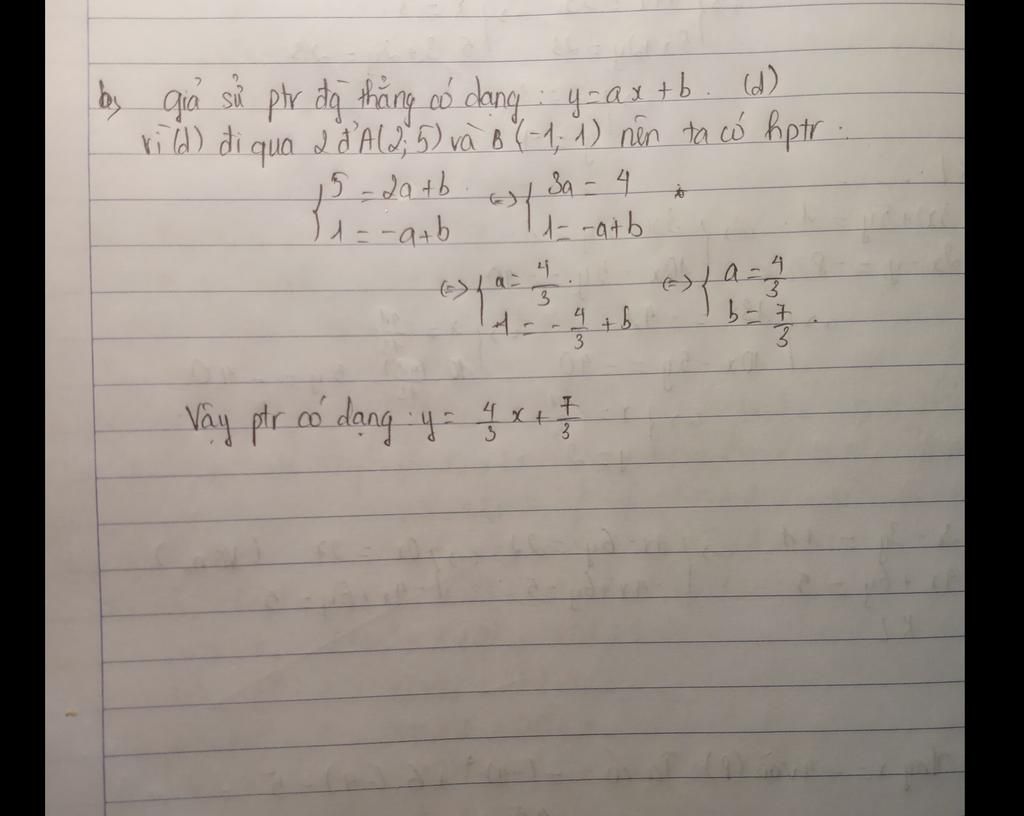 b, giả sử ptr đg thẳng có dạng: y = ax + b. (d)
vì (d) đi qua 2 đ' A(2; 5) và B (-1; 1) nên ta có hptr.
{ 5 = 2a + b <=> { 3a = 4
1 = -a + b 1 = -a + b
<=> { a = 4/3 <=> { a = 4/3
1 = - 4/3 + b b = 7/3
Vậy ptr có dạng: y = 4/3 x + 7/3